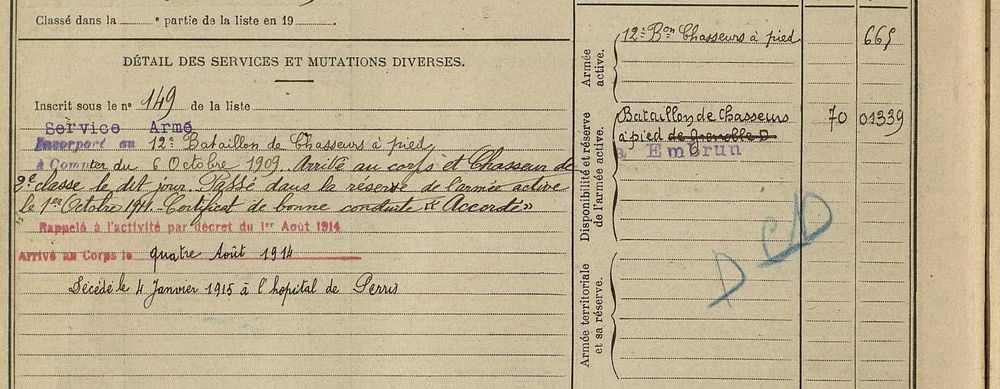 Classé dans la ° partie de la liste en 19
DÉTAIL DES SERVICES ET MUTATIONS DIVERSES.
Inscrit sous le n° 149 de la liste
Service Armé
Incorporé au 12e Bataillon de Chasseurs à pied
à Compter du 6 Octobre 1909. Arrivé au corps et Chasseur de
2e classe le dit jour. Passé dans la réserve de l'armée active
le 1er Octobre 1911. Certificat de bonne conduite "Accordé"
Rappelé à l'activité par décret du 1er Août 1914
Arrivé au Corps le quatre Août 1914
Décédé le 4 Janvier 1915 à l'hopital de Serris
Armée active.
12e Bon Chasseurs à pied 665
Disponibilité et réserve de l'armée active.
Bataillon de Chasseurs 70 01339
à pied de Grenoble D
à Embrun
DCD
D
Armée territoriale et sa réserve.